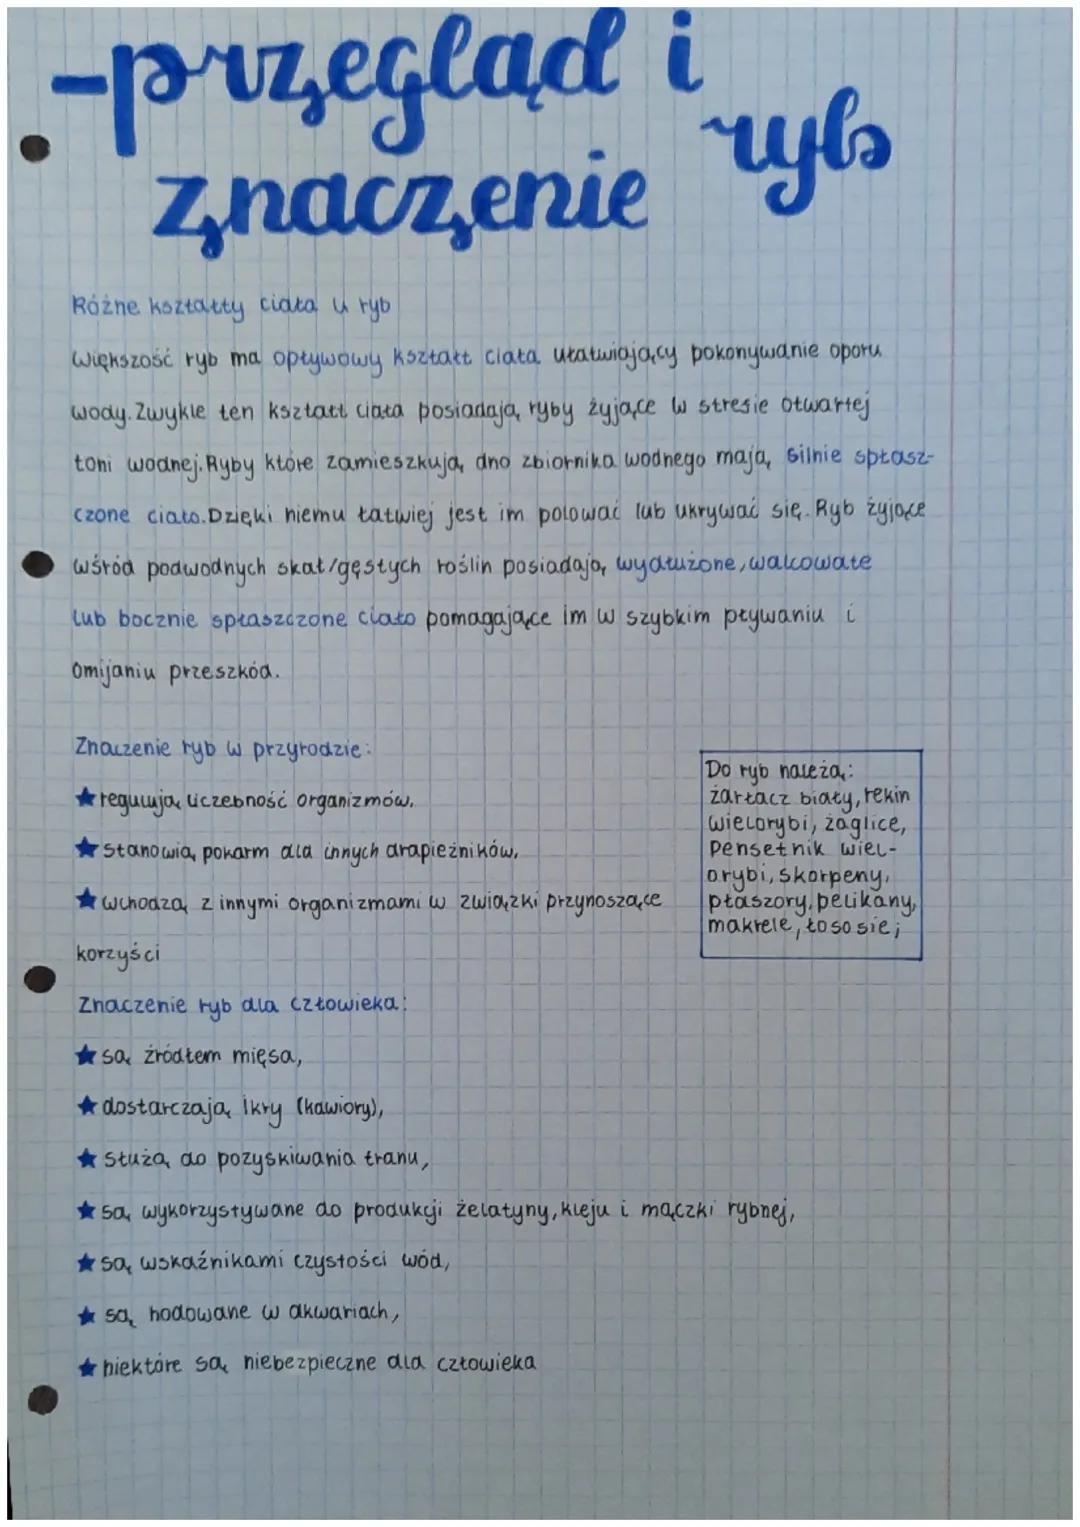 -przegląd i
ryb
znaczenie
Różne kształty ciała u ryb
Większość ryb ma opływowy kształt ciała ułatwiający pokonywanie oporu
wody. Zwykle ten kształt ciała posiadają ryby żyjące w stresie otwartej
toni wodnej. Ryby które zamieszkują dno zbiornika wodnego mają silnie spłasz-
czone ciało. Dzięki niemu łatwiej jest im polować lub ukrywać się. Ryb żyjące
wśród podwodnych skał/gęstych roślin posiadają wydłużone, walcowate
lub bocznie spłaszczone ciało pomagające im w szybkim pływaniu i
omijaniu przeszkód.
Znaczenie ryb w przyrodzie:
★ regulują liczebność organizmów,
★ stanowią pokarm dla innych drapieżników,
★ wchodzą z innymi organizmami w związki przynoszące
korzyści
Do ryb należą:
żarłacz biały, rekin
wielorybi, żaglice,
Pensetnik wiel-
orybi, skorpeny,
płaszory, pelikany,
makrele, łososie;
Znaczenie ryb dla człowieka:
★ są źródłem mięsa,
★ dostarczają ikry (kawiory),
★ służą do pozyskiwania tranu,
★ są wykorzystywane do produkcji żelatyny, kleju i mączki rybnej,
★ są wskaźnikami czystości wód,
★ są hodowane w akwariach,
★ niektóre są niebezpieczne dla człowieka